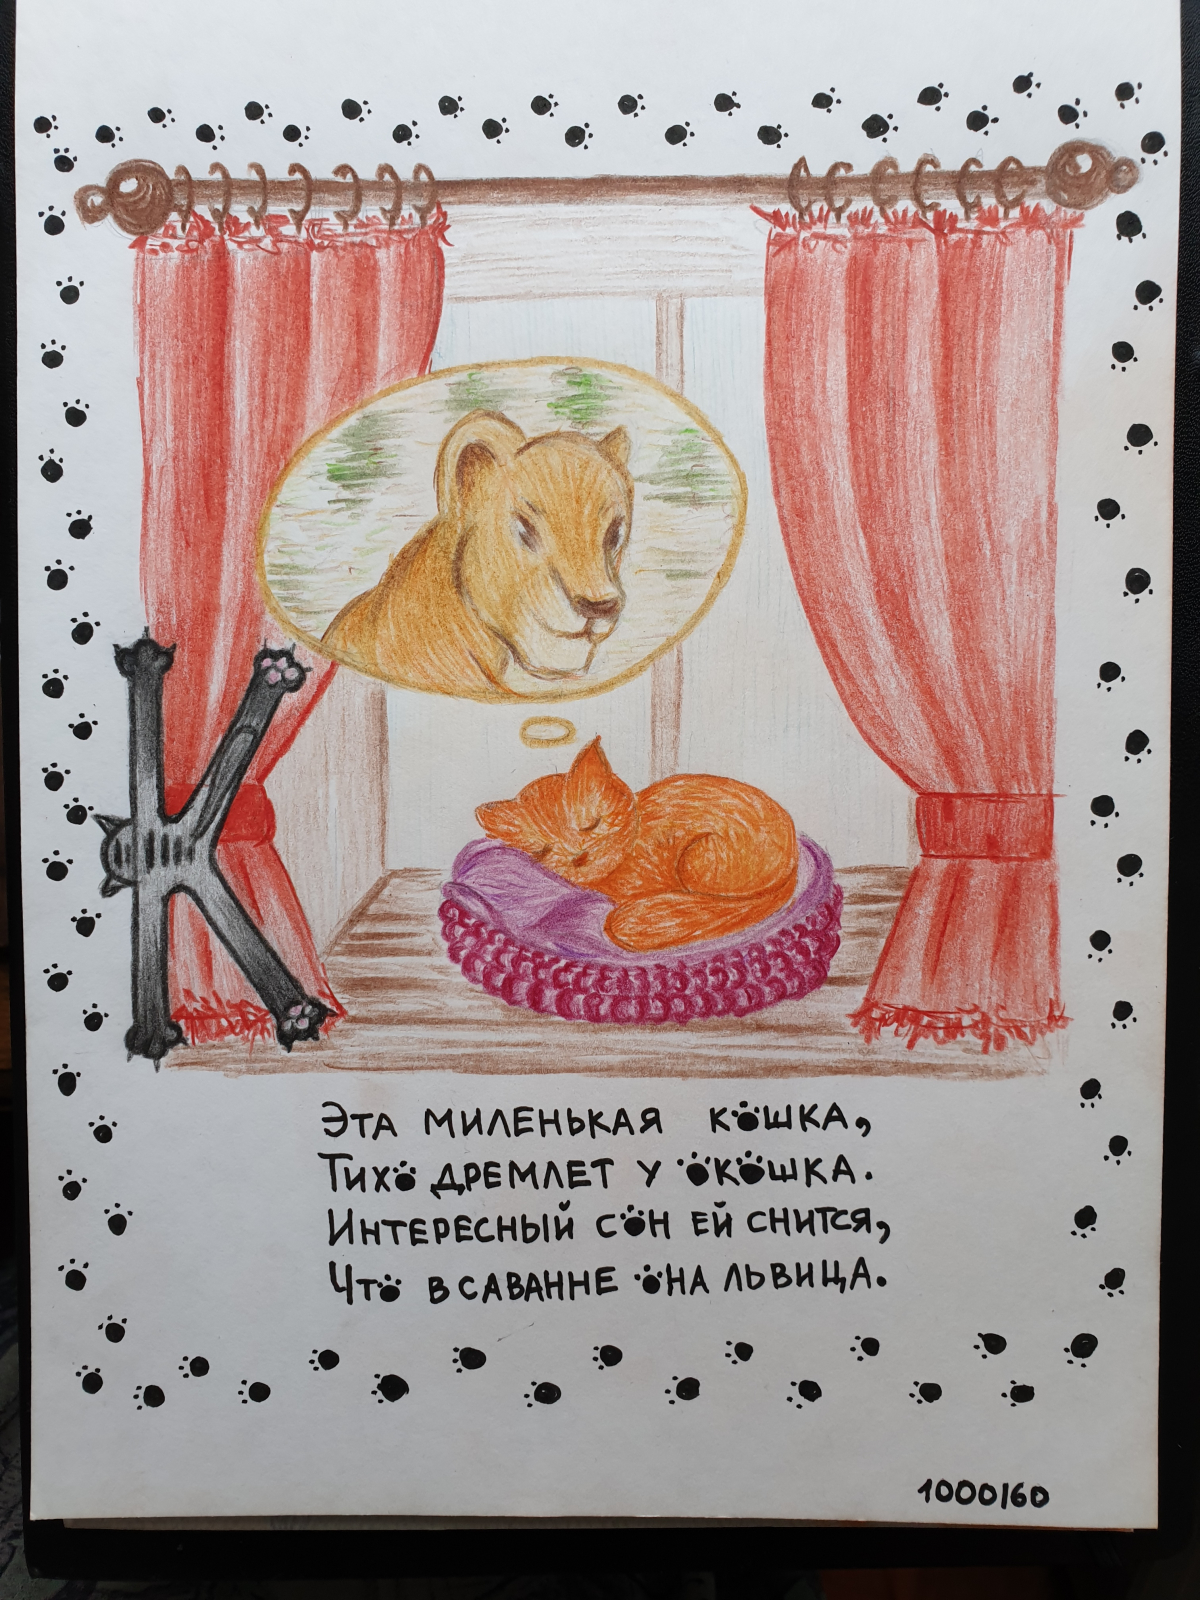 К
Эта миленькая кошка,
Тихо дремлет у окошка.
Интересный сон ей снится,
Что в саванне она львица.
1000/60